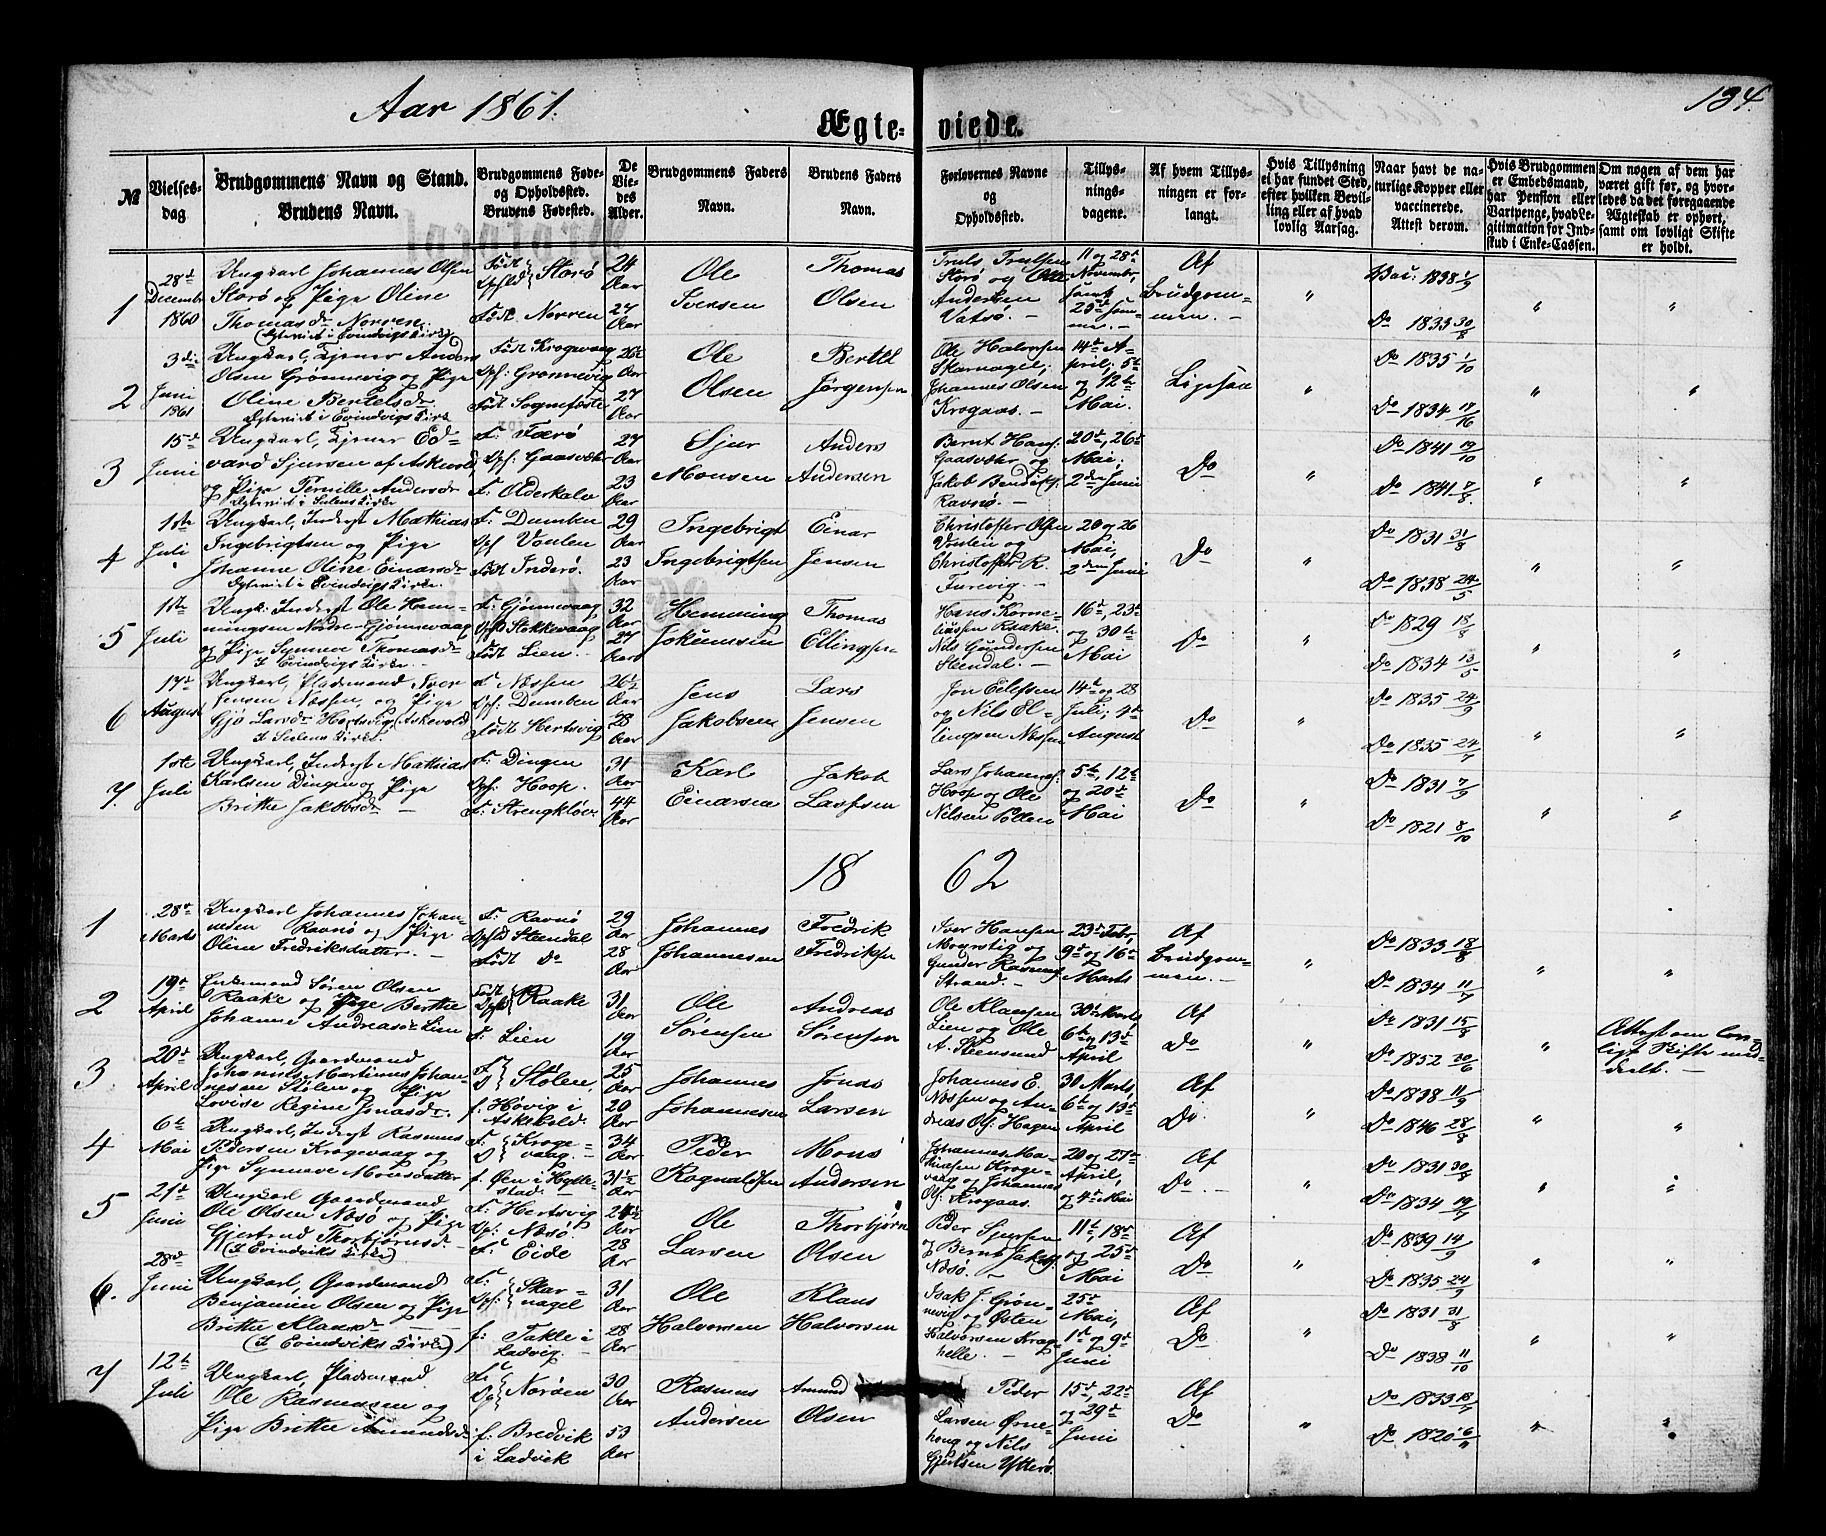 Aar 1861.
134.
Ægte-viede.
№
Vielses-
dag
Brudgommens Navn og Stand.
Brudens Navn.
Brudgommens Føde-
og Opholdssted.
Brudens Fødested.
De
Vie-
des
Alder.
Brudgommens Faders
Navn.
Brudens Faders
Navn.
Forlovernes Navne
og
Opholdssted.
Tillys-
nings-
dagene.
Af hvem Tillys-
ningen er for-
langt.
Hvis Tillysning
ei har fundet Sted,
efter hvilken Bevil-
ling eller af hvad
lovlig Aarsag.
Naar havt de na-
turlige Kopper eller
vaccinerede.
Attest derom.
Hvis Brudgommen
er Embedsmand,
har Pension eller
Vartpenge, hvad Le-
gitimation for Ind-
skud i Enke-Cassen.
Om nogen af dem har
været gift før, og hvor-
ledes da det foregaaende
Ægteskab er ophørt,
samt om lovligt Skifte
er holdt.
1
28de
Decembr
1860
Ungkarl Johannes Olsen
Storø og Pige Oline
Thomasdr Norren.
(Copuleret i Evindvigs Kirke)
Født
Ophld } Storø
Født Norren
24
Aar
27
Aar
Ole
Svensen
Thomas
Olsen
Truls Trulsen
Storø og Ole
Andersen
Vatsø. -
11 og 28de
November,
samt
25de
Af
Brudgom-
men. -
"
Vac: 1838 1/9
Do 1833 30/8
"
"
2
3die
Juni
1861
Ungkarl, Tjener Anders
Olsen Grønnevig og Pige
Oline Bertelsdr
Født Krogevaag
Opf: Grønnevig
Født Sognefæste
26½
Aar
27
Aar
Ole
Olsen
Bertel
Jørgensen
Ole Halvorsen
Skarnagel,
Johannes Olsen
Krogaas. -
14de A-
pril, 5te
og 12te
Mai.
Ligesaa
"
Do 1835 1/10
Do 1834 17/16
"
"
3
15de
Juni
Ungkarl, Tjener Ed-
vard Sjursen af Askevold
og Pige Pernille Andersdr
F. Færø
Opf: Gaasvær
F. Olderkalv
27
Aar
23
Aar
Sjur
Monsen
Anders
Andersen
Bernt Hans:
Gaasvær og
Jakob Bendiks:
Ravnø. -
20de, 26de
Mai,
2den Juni
Do
"
Do 1841 19/10
Do 1841 7/8
"
"
4
1ste
Juli
Ungkarl, Inderst Mathias
Ingebrigtsen og Pige
Johanne Oline Einarsdr
F. Dumben
Opf Voulen
Født Inderø.
29
Aar
23
Aar
Ingebrigt
Ingebrigtsen
Einar
Jensen
Christoffer Olsen
Voulen og
Christoffer R.
Furevig. -
20 og 26
Mai,
2den Juni
Do
"
Do 1831 31/8
Do 1838 24/5
"
"
5
1ste
Juli
Ungk: Inderst Ole Hem-
mingsen Nordre-Gjønnevaag
og Pige Synneve Thomasdr
I Evindvigs Kirke. -
F. Gjønnevaag
Ophld Stokkevaag
Født Lien. -
32
Aar
27
Aar
Hemming
Jokumsen
Thomas
Ellingsen
Hans Korne-
liussen Raake.
Nils Gundersen
Steendal. -
16de, 23de
og 30te
Mai
Do
"
Do 1829 18/8
Do 1834 13/5
"
"
6
17de
August
Ungkarl, Pladsmand Iver
Jensen Næssen, og Pige
Gjø Larsdr Hertsvig (Askevold
I Sulens Kirke.
F. Næssen
Opf. Dumben
Født Hertsvig
26½
Aar
28
Aar
Jens
Jakobsen
Lars
Jensen
Jon Eilefsen
og Nils El-
lingsen Næssen
14de og 28
Juli; 4de
August
Do
"
Do 1835 24/9
Do 1835 24/7
"
"
7.
1ste
Juli
Ungkarl, Inderst Mathias
Karlsen Dingen og Pige
Britte Jakobsdr
F. Dingen
Opf: Hoop.
F: Strengkløv
31
Aar
44
Aar
Karl
Einarsen
Jakob
Lassesen
Lars Johanns:
Hoop og Ole
Nilsen Pollen
5te, 12te
og 20de
Mai
Do
"
Do 1831 7/9
Do 1821 8/10
"
"
18 62
1
28de
Marts
Ungkarl Johannes Johan-
nesen Ravnø og Pige
Oline Fredriksdatter. -
F. Ravnø
Ophld Steendal
Født Do
29
Aar
28
Aar
Johannes
Johannesen
Fredrik
Fredriksen
Iver Hansen
Moyrstig og
Gunder
Strand. -
23de Febr,
9de og 16de
Marts
Af
Brudgom-
men. -
"
Do 1833 18/8
Do 1834 11/7
"
"
2
19de
April
Enkemand Søren Olsen
Raake og Pige Berthe
Johanne Andreasdr Lien
Født
Ophld } Raake
F. Lien
31
Aar
19
Aar
Ole
Sørensen
Andreas
Sørensen
Ole Klausen
Lien og Ole
A. Steensund
30de Marts,
6te og 13de
April
Af
Do
"
Do 1831 15/8
Do 1852 30/6
"
Attest om lov-
ligt Skifte med-
deelt. -
3
20de
April
Ungkarl, Gaardmand
Johannes Martinus Johan-
nesen Stølen og Pige
Lovise Regine Jonasdr.
F
O } Stølen,
f. Høvig i
Askevold.
25
Aar
20
Aar
Johannes
Johannesen
Jonas
Larsen
Johannes E.
Næssen og An-
dreas Ols: Hagen
30 Marts,
6te og 13de
April
Af
Do.
"
Do 1838 11/9
Do 1846 28/8
"
"
4
6te
Mai
Ungkarl, Inderst Rasmus
Pedersen Krogevaag og
Pige Synneve Monsdatter
F.
O } Kroge-
vaag.
f. Øen i Hylle-
stad. -
34
Aar
31½
Aar
Peder
Rognaldsen
Mons
Andersen
Johannes Ma-
thiasen Kroge-
vaag og Johannes
Ols: Krogaas.
20 og 27de
April,
og 4de Mai
Af
Do. -
"
Do 1831 30/8
Do 1834 19/7
"
"
5
21de
Juni
Ungkarl Gaardmand
Ole Olsen Næsø og Pige
Gjertrud Thorbjørnsdr
(I Evindviks Kirke)
F. Hertsvig
Opf: Næsø.
F. Eide
24½
Aar
28
Aar
Ole
Larsen
Thorbjørn
Olsen
Peder Sjursen
og Bernt Jakobs:
Næsø. -
11te, 18de
og 25de
Mai
Af
Do
"
Do 1839 14/9
Do 1835 24/9
"
"
6.
28de
Juni
Ungkarl, Gaardmand
Benjamin Olsen og Pige
Britte Klausdr
(I Evindviks Kirke)
F.
Opf: } Skar-
nagel
f: Takle i
Ladvig. -
31
Aar
28
Aar
Ole
Halvorsen
Klaus
Halvorsen
Isak J. Grøn-
nevig og Østen
Halvorsen Krag-
helle. -
25de
Mai,
1ste og 9de
Juni
Af
Do
"
Do 1831 31/8
Do 1838 11/10
"
"
7
12te
Juli
Ungkarl, Pladsmand
Ole Rasmussen og
Pige Britte Amundsdr
F.
Op } Norøen
f. Bredvik
i Ladvik
30
Aar
53
Aar
Rasmus
Andersen
Amund
Olsen
Peder
Larsen Ørne-
houg og Nils
Gjertsen Ytterø.
15de, 22de
og 29de
Juni
Af
Do
"
Do 1833 18/7
Do 1820 6/11
"
"